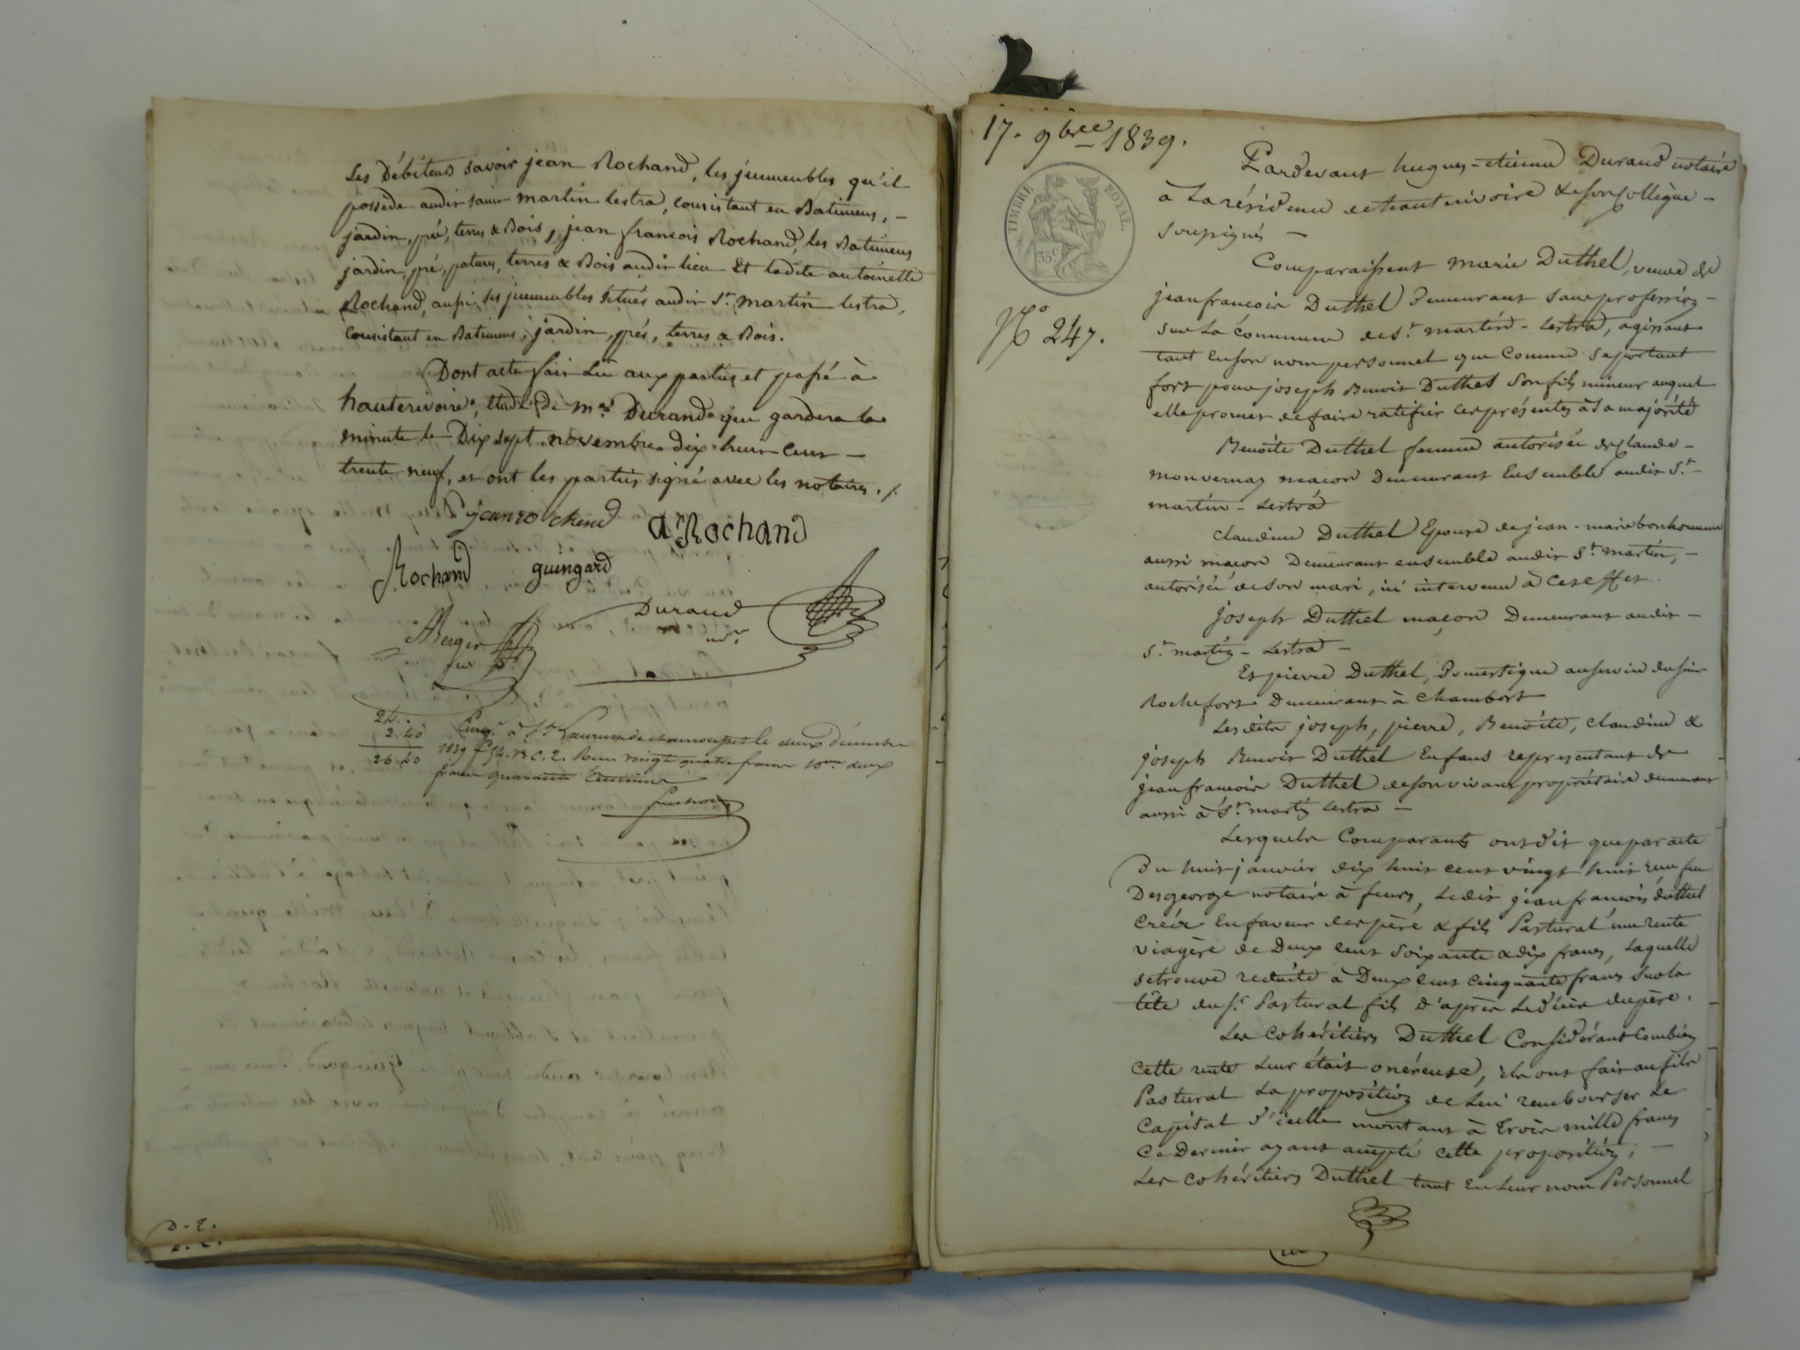 Les Débiteurs savoir jean Rochand, les jmmeubles qu'il
possède audit saint martin lestra, consistant en Batimens, -
jardin, pré, terres & Bois, jean francois Rochand, les Batimens
jardin, pré, patures, terres & Bois audit lieu Et ladite antoinette
Rochand, aussi ses jmmeubles situés audit St. martin lestra,
consistant en Batimens, jardin, prés, terres & Bois.
Dont acte fait Lu aux parties et passé à
hauterivoire, Etude de me Durand qui gardera la
minute le Dix sept novembre dix huit cent -
trente neuf, et ont les parties signé avec les notaires. /.
jean rochand
A Rochand
Rochand
guingard
Durand
nre
Berger
24..
2.40
26.40
Enreg. à St Laurent de chamousset le deux décembre
1839 f° 54. R C. 2. Reçu vingt quatre francs 10eme deux
francs quarante centimes
D. 2.
17. 9bre 1839.
TIMBRE ROYAL
35c
N° 247.
Pardevant hugues-etienne Durand notaire
à La résidence de hauterivoire & son Collègue -
soussignés -
Comparaissent marie Duthel, veuve de
jean francois Duthel Demeurant sans profession -
sur La commune de St. martin-Lestra, agissant
tant en son nom personnel que Comme se portant
fort pour joseph Benoit Duthel son fils mineur auquel
elle promet de faire ratifier ces présentes à sa majorité
Benoite Duthel femme autorisée de Claude -
monvernay macon Demeurant Ensemble audit St. -
martin - Lestra
Claudine Duthel Epouse de jean-marie bonhomme
aussi macon Demeurant ensemble audit St. martin, -
autorisée de son mari, ici intervenu à cet effet.
Joseph Duthel maçon Demeurant audit -
St. martin - Lestra -
Et pierre Duthel, Domestique au service du sieur
Rochefort Demeurant à Chambost
Lesdits joseph, pierre, Benoite, Claudine &
joseph Benoit Duthel Enfans representant de
jean francois Duthel de son vivant propriétaire demeurant
aussi à St. martin Lestra -
Lesquels Comparants ont dit que par acte
Du huit janvier dix huit cent vingt huit reçu feu
Desgeorge notaire à feurs, Ledit jean francois duthel
créa En faveur des père & fils Pastural une rente
viagère de Deux cent soixante & dix francs, Laquelle
se trouve reduite à Deux cent cinquante francs sur la
tête du sr. Pastural fils d'après Le décès du père.
Les cohéritiers Duthel Considérant combien
cette rente Leur était onéreuse, ils ont fait au fils
Pastural La proposition de Lui rembourser Le
Capital d'icelle montant à Trois mille francs
Ce Dernier ayant accepté cette proposition; -
Les cohéritiers Duthel tant En Leur nom Personnel